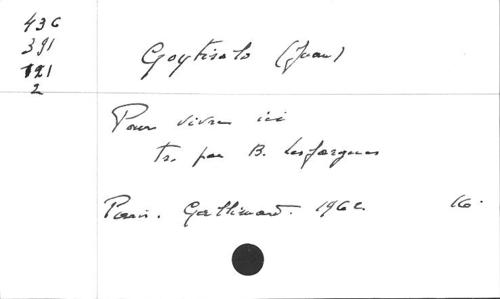 436
391
121
2
Goytisolo (Juan)
Pour vivre ici
Tr. par B. Lesfargues
Paris. Gallimard. 1962. 16.